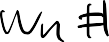 Wn #